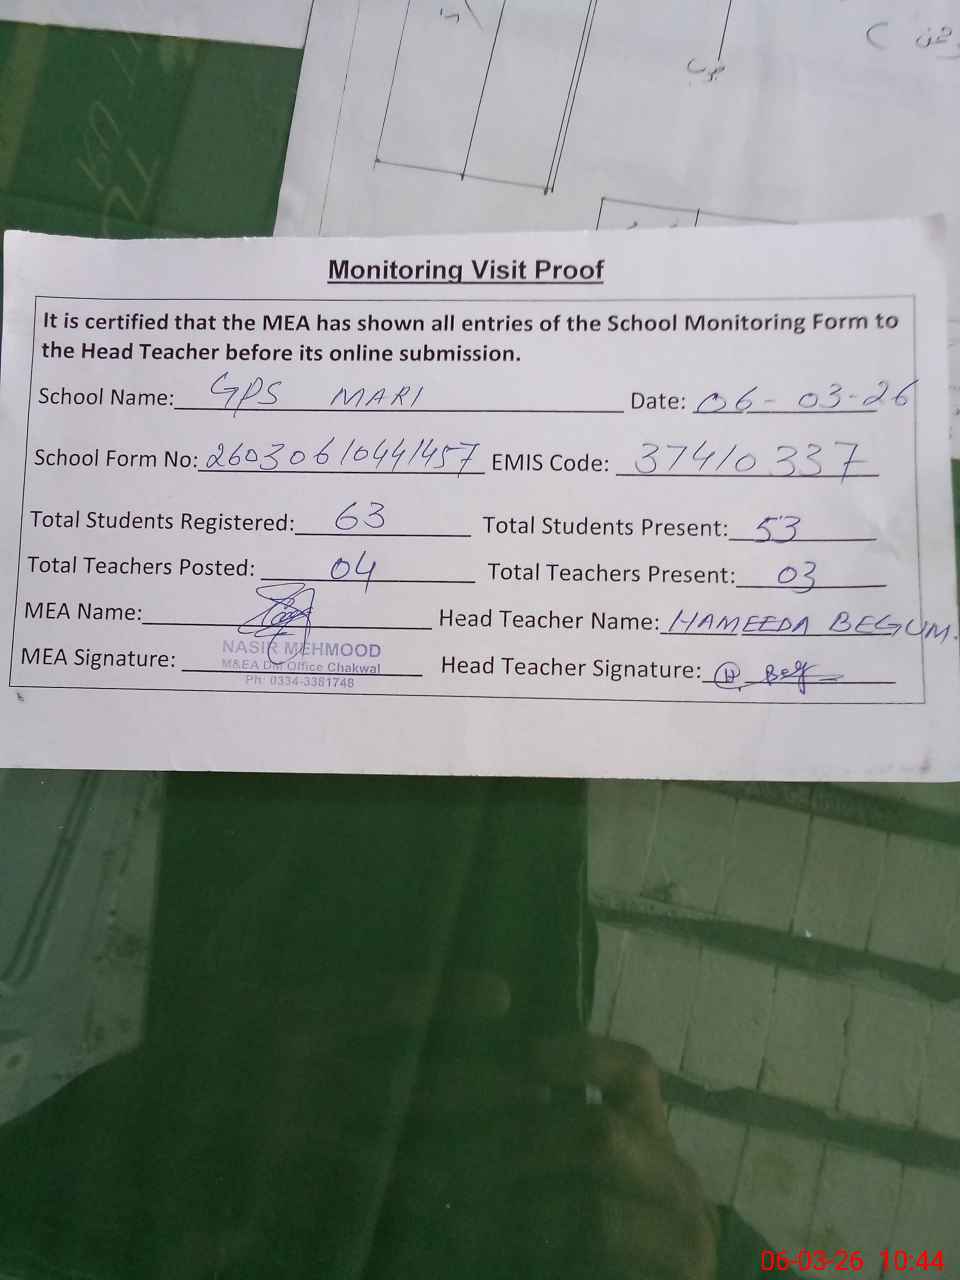 Monitoring Visit Proof
It is certified that the MEA has shown all entries of the School Monitoring Form to
the Head Teacher before its online submission.
School Name: GPS MARI Date: 06-03-26
School Form No: 26030610441457 EMIS Code: 37410337
Total Students Registered: 63 Total Students Present: 53
Total Teachers Posted: 04 Total Teachers Present: 03
MEA Name: Head Teacher Name: HAMEEDA BEGUM.
NASIR MEHMOOD
MEA Signature: M&EA DM Office Chakwal Head Teacher Signature:
Ph: 0334-3381748
06-03-26 10:44